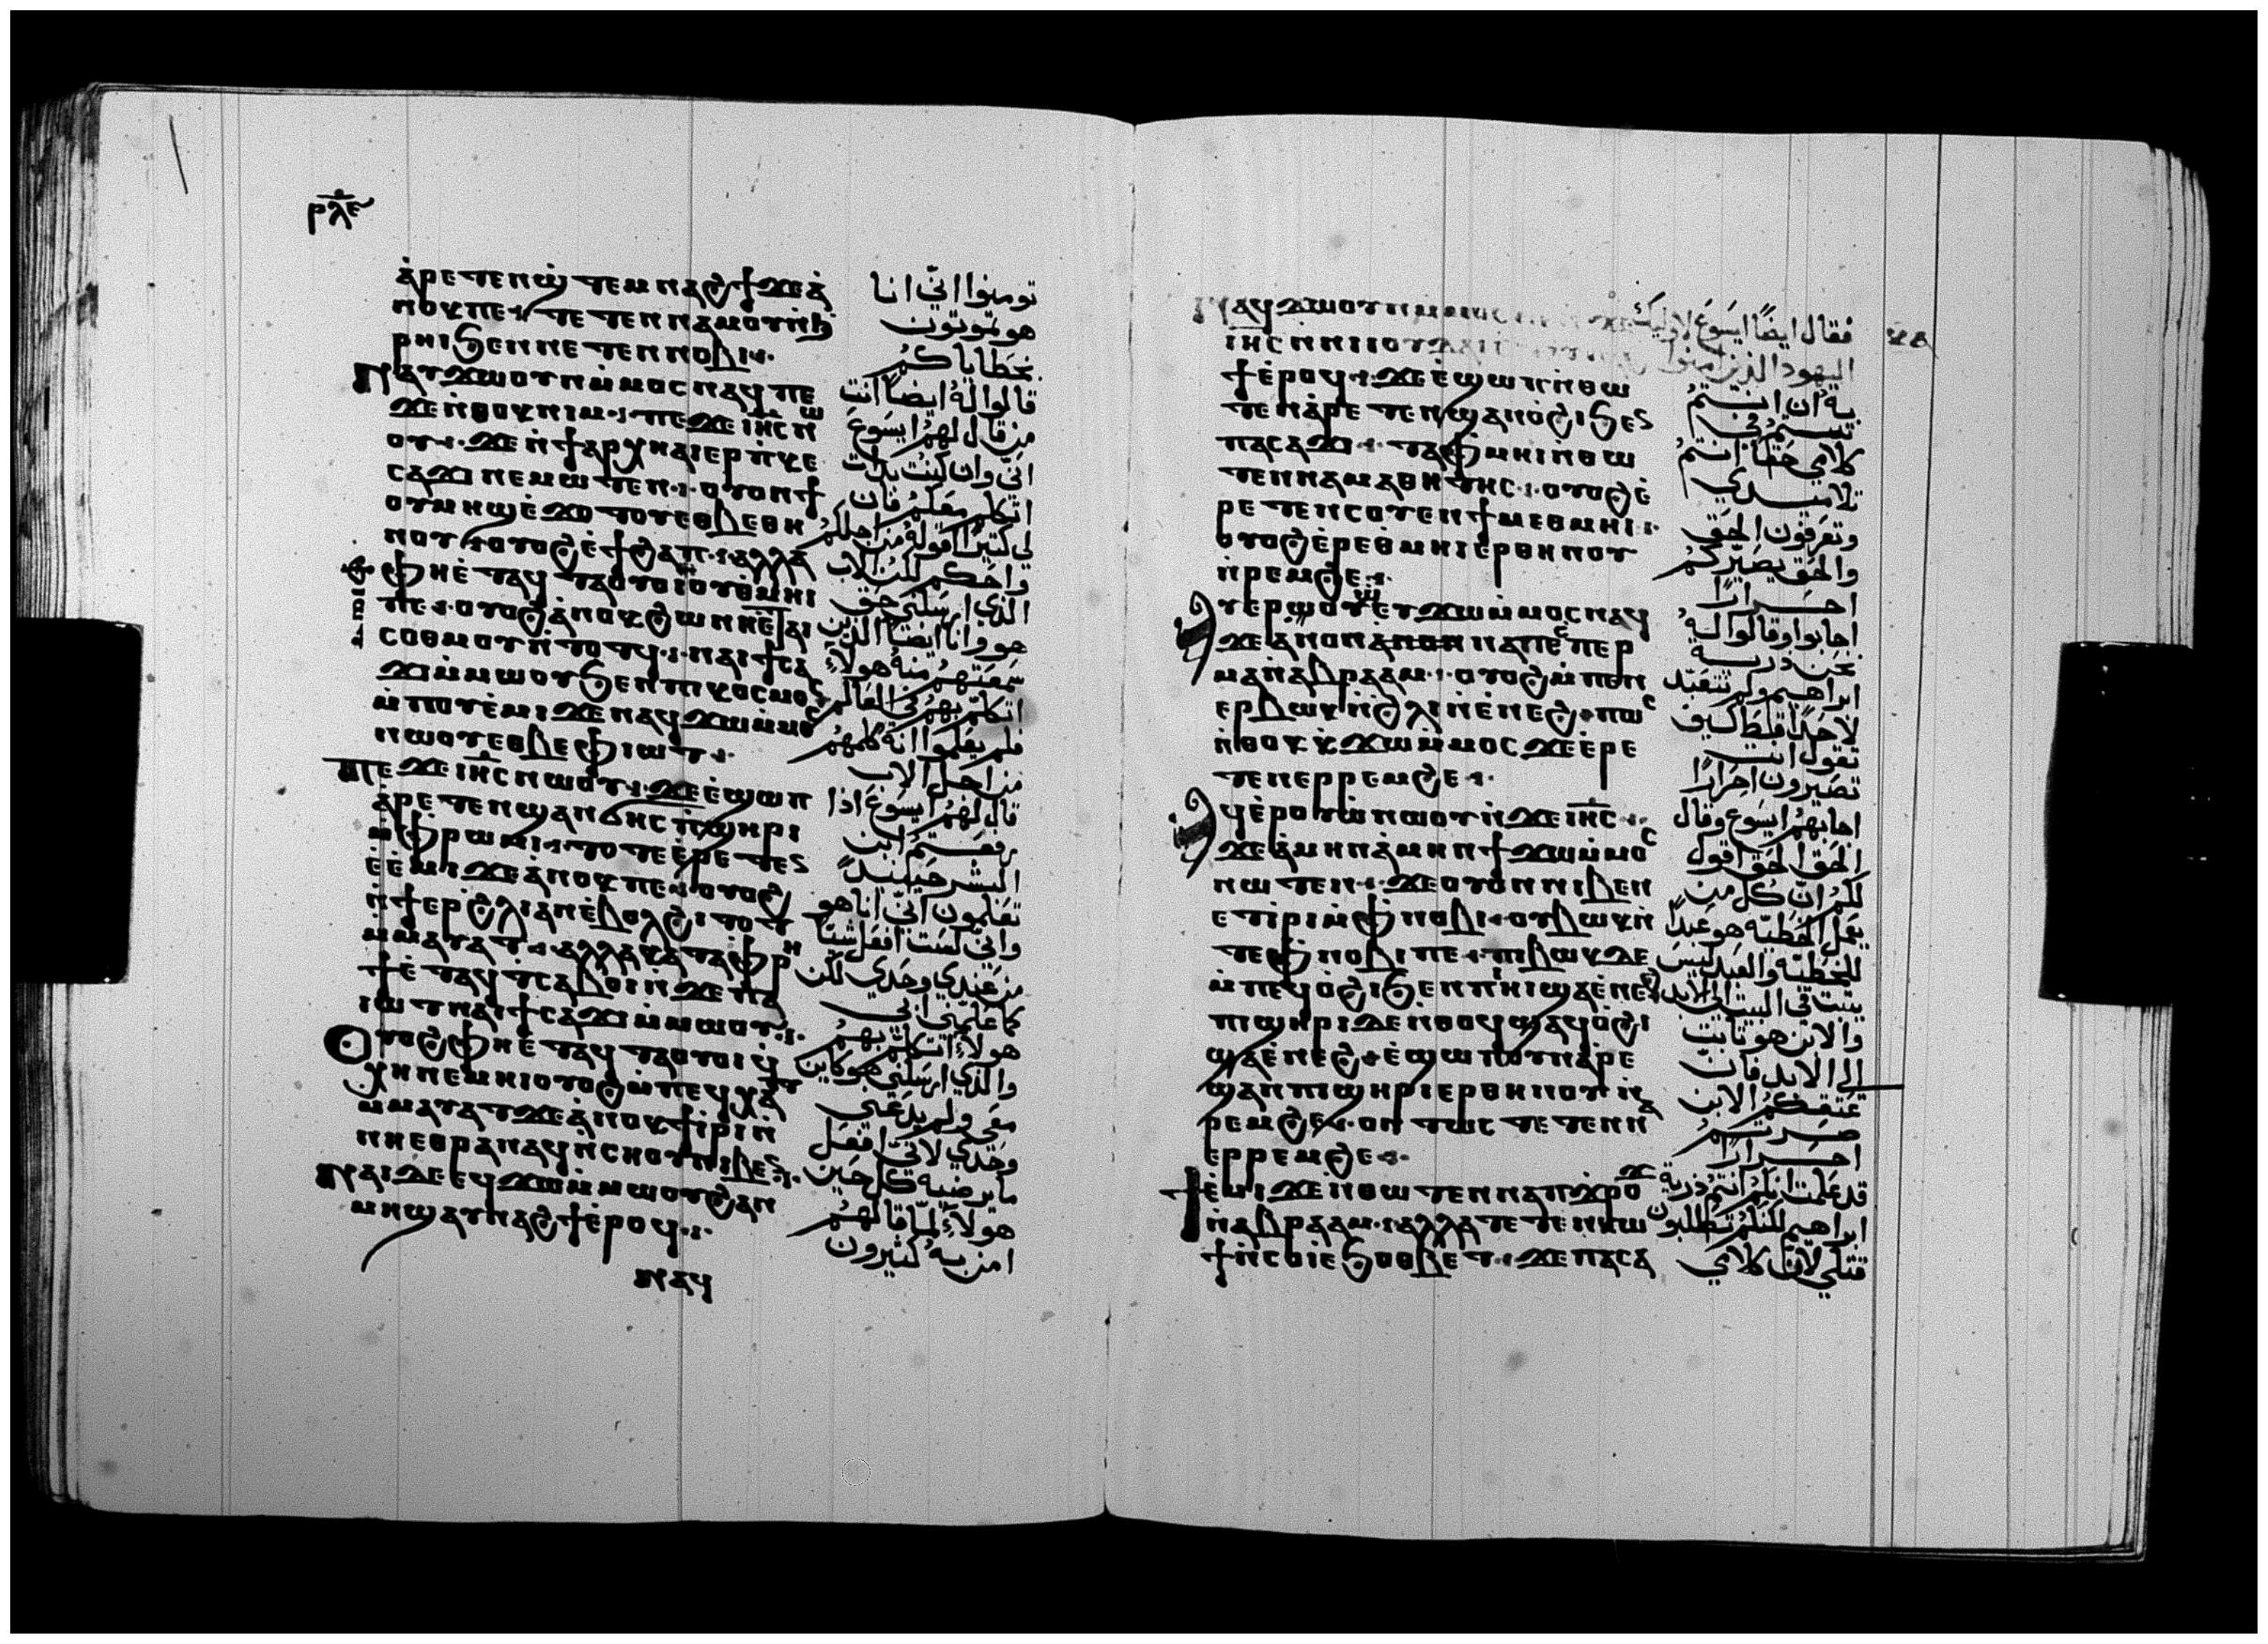 ⲣⲗⲉ
ⲁ̀ⲣⲉⲧⲉⲛϣ̀ⲧⲉⲙⲛⲁϩϯϫⲉⲁ̀
ⲛⲟⲕⲡⲉ ⲧⲉⲧⲉⲛⲛⲁⲙⲟⲩⲛ̀ϧ
ⲣⲏⲓϧⲉⲛⲛⲉⲧⲉⲛⲛⲟⲃⲓ
ⲛⲁⲩϫⲱⲟⲩⲛⲙ̀ⲙⲟⲥⲛⲁϥⲡⲉ
ϫⲉⲛ̀ⲑⲟⲕⲛⲓⲙ ⲡⲉϫⲉⲓⲏⲥⲛⲱ
ⲟⲩ ϫⲉⲛ̀ϯⲁⲣⲭⲏⲁⲓⲉⲣⲡ̀ⲕⲉ
ⲥⲁϫⲓⲛⲉⲙⲱⲧⲉⲛ ⲟⲩⲟⲛϯ
ⲟⲩⲙⲏϣⲉ̀ϫⲟⲧⲟⲩⲉⲑⲃⲉⲑⲏ
ⲛⲟⲩ ⲟⲩⲟϩⲉ̀ϯϩⲁⲡ ⲁⲗⲗⲁ
ⲫⲏⲉ̀ⲧⲁϥⲧⲁⲟⲩⲟⲓⲟⲩⲑ̀ⲙⲏⲓ
ⲡⲉ ⲟⲩⲟϩⲁ̀ⲛⲟⲕϩⲱⲛⲏⲉ̀ⲧⲁⲓ
ⲥⲟⲑⲙⲟⲩⲛ̀ⲧⲟⲧϥ ⲛⲁⲓϯⲥⲁ
ϫⲓⲙ̀ⲙⲱⲟⲩϧⲉⲛⲡⲓⲕⲟⲥⲙⲟⲥ
ⲙ̀ⲡⲟⲩⲉ̀ⲙⲓϫⲉⲛⲁϥϫⲱⲙ̀ⲙⲟⲥ
ⲛⲱⲟⲩⲉⲑⲃⲉⲫⲓⲱⲧ
ⲡⲉϫⲉⲓⲏⲥⲛⲱⲟⲩ ϫⲉⲉ̀ϣⲱⲡ
ⲁ̀ⲣⲉⲧⲉⲛϣⲁⲛϭⲏⲥⲡ̀ϣⲏⲣⲓ
ⲙ̀ⲫⲣⲱⲙⲓ ⲧⲟⲧⲉⲉ̀ⲣⲉⲧⲉⲥ
ⲉ̀ⲉ̀ⲙⲓϫⲉⲁ̀ⲛⲟⲕⲡⲉ ⲟⲩⲟϩ
ⲛ̀ϯⲉⲣϩ̀ⲗⲓⲁⲛⲉ̀ⲃⲟⲗϩⲓⲧⲟⲧ
ⲙ̀ⲙⲁⲩⲁⲧ ⲁⲗⲗⲁⲕⲁⲧⲁⲫⲣⲏ
ϯⲉ̀ⲧⲁϥⲧⲥⲁⲃⲟⲓⲛ̀ϫⲉⲡⲁ
ⲓⲱⲧⲛⲁⲓϯⲥⲁϫⲓⲙ̀ⲙⲱⲟⲩ
ⲟⲩⲟϩⲫⲏⲉ̀ⲧⲁϥⲧⲁⲟⲩⲟⲓϥ̀
ⲭⲏⲛⲉⲙⲏⲓⲟⲩⲟϩⲙ̀ⲡⲉϥⲭⲁⲧ
ⲙ̀ⲙⲁⲩⲁⲧϫⲉⲁ̀ⲛⲟⲕϯⲓ̀ⲣⲓⲛ̀
ⲛⲏⲉⲑⲣⲁⲛⲁϥⲛ̀ⲥⲏⲟⲩⲛⲓⲃⲉⲥ
ⲛⲁⲓⲇⲉⲉϥϫⲱⲙ̀ⲙⲱⲟⲩϩⲁⲛ
ⲙⲏϣⲁⲩⲛⲁϩϯⲉ̀ⲣⲟϥ
ⲛⲁϥ
تومنوا انّي انا
هو تموتون
بخطاياكم
قالوا لهُ ايضاً انت
من قال لهم ايسوع
انّي وان كنت بدات
اتكلم معكم فان
لي كثيرًا اقولهُ من اجلكم
واحكم لكن الاب
الذي ارسلني حق
هو وانا ايضاً الذين
سمعتهم منهُ هولاءِ
اتكلم بهم في العالم
فلم يعلموا انه كلمهم
من اجل الاب
قال لهم ايسوع اذا
رفعتم ابن
البشر حينيذٍ
تعلمون انّي انا هو
وانّي لست افعل شيا
من عندي وحدي لكن
كما علّمني ابي
هولاءِ اتكلم بهم
والذي ارسلني هو كاين
معي ولم يدعني
وحدي لانّي افعل
ما يرضيه كل حين
هولاءِ لمّا قالهم
امن به كثيرون
ⲛⲁϥϫⲱⲟⲩⲛⲙ̀ⲙⲟⲥ
ⲓⲏⲥⲛ̀ⲛⲓⲓⲟⲩⲇⲁⲓ
ϯⲉ̀ⲣⲟϥ ϫⲉⲉ̀ϣⲱⲡⲛ̀ⲑⲱ
ⲧⲉⲛⲁ̀ⲣⲉⲧⲉⲛϣⲁⲛⲟ̀ϩⲓϧⲉⲥ
ⲡⲁⲥⲁϫⲓ ⲧⲁⲫⲙⲏⲓⲛ̀ⲑⲱ
ⲧⲉⲛⲛⲁⲙⲁⲑⲏⲧⲏⲥ ⲟⲩⲟϩⲉ̀
ⲣⲉⲧⲉⲛⲥⲟⲩⲉⲛϯⲙⲉⲑⲙⲏⲓ
ⲟⲩⲟϩⲉ̀ⲣⲉⲑ̀ⲙⲏⲓⲉⲣⲑⲏⲛⲟⲩ
ⲛ̀ⲣⲉⲙϩⲉ
ⲁⲩⲉⲣⲟⲩⲱⲉⲩϫⲱⲙ̀ⲙⲟⲥⲛⲁϥ
ϫⲉⲁ̀ⲛⲟⲛⲁ̀ⲛⲟⲛⲛⲁⲡⲉⲥⲡⲉⲣ
ⲙⲁⲛ̀ⲁⲃⲣⲁⲁⲙ ⲟⲩⲟϩⲙ̀ⲡⲉⲛ
ⲉⲣⲃⲱⲕⲛ̀ϩ̀ⲗⲓⲛ̀ⲉ̀ⲛⲉϩ ⲡⲱⲥ
ⲛ̀ⲑⲟⲕⲕ̀ϫⲱⲙ̀ⲙⲟⲥϫⲉⲉ̀ⲣⲉ
ⲧⲉⲛⲉⲣⲣⲉⲙϩⲉ
ⲁϥⲉ̀ⲣⲟⲩⲱ̀ⲛⲱⲟⲩⲛ̀ϫⲉⲓⲏⲥ
ϫⲉⲁ̀ⲙⲏⲛⲁ̀ⲙⲏⲛϯϫⲱⲙ̀ⲙⲟⲥ
ⲛⲱⲧⲉⲛ ϫⲉⲟⲩⲟⲛⲛⲓⲃⲉⲛ
ⲉⲧⲓ̀ⲣⲓⲙ̀ⲫⲛⲟⲃⲓ ⲟⲩⲃⲱⲕⲛ̀
ⲧⲉⲫⲛⲟⲃⲓⲡⲉ ⲡⲓⲃⲱⲕⲇⲉ
ⲙ̀ⲡⲉϥⲟ̀ϩⲓϧⲉⲛⲡⲏⲓϣⲁⲉ̀ⲛⲉϩ
ⲡⲓϣⲏⲣⲓⲇⲉⲛ̀ⲑⲟϥϣⲁϥⲟ̀ϩⲓ
ϣⲁⲉ̀ⲛⲉϩ ⲉ̀ϣⲱⲡⲟⲩⲛⲁ̀ⲣⲉ
ϣⲁⲛⲡⲓϣⲏⲣⲓⲉⲣⲑⲏⲛⲟⲩⲛ̀
ⲣⲉⲙϩⲉ ⲟⲛⲧⲱⲥⲧⲉⲧⲉⲛⲛⲁ
ⲉⲣⲣⲉⲙϩⲉ
ϯⲉ̀ⲙⲓϫⲉⲛ̀ⲑⲱⲧⲉⲛⲛⲁⲡϫ̀ⲣⲟϫ
ⲛ̀ⲁⲃⲣⲁⲁⲙ ⲁⲗⲗⲁⲧⲉⲧⲉⲛⲕⲱ
ϯⲛ̀ⲥⲱⲓⲉϧⲟⲑⲃⲉⲧ ϫⲉⲡⲁⲥⲁ
فقال ايضًا ايسوع لاوليك
اليهود الذين امنوا
به ان انتم
ثبتم في
كلامي حقاً انتم
تلاميذي
وتعرفون الحق
والحق يصيّركم
احرارًا
اجابوا وقالوا له
نحن ذرية
ابراهيم ولم نتعبّد
لاحد قط كيف
تقول انت
تصيرون احرارًا
اجابهم ايسوع وقال
الحق الحق اقول
لكم انّ كل من
يعمل الخطية هو عبدًا
للخطية والعبد ليس
يثبت في البيت الى الابد
والابن هو ثابت
الى الابد فان
عتقكم الابن
صرتم
احرارًا
قد علمت انكم انتم ذرية
ابراهيم لكنكم تطلبون
قتلي لانّ كلامي